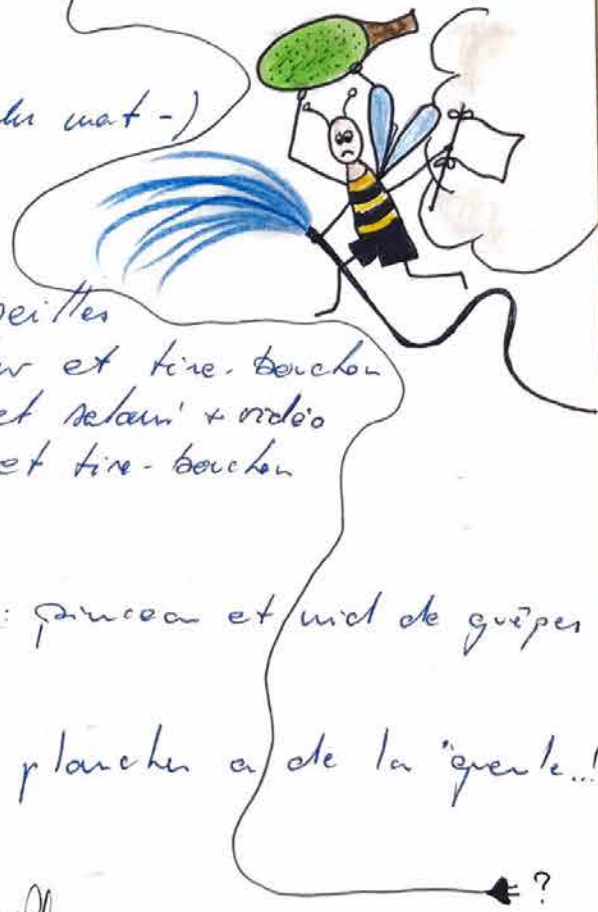 et tire-bouchon
et salami + vidéo
et tire-bouchon
: pinceau et nid de guêpes
plancher a de la "gueule..!
?